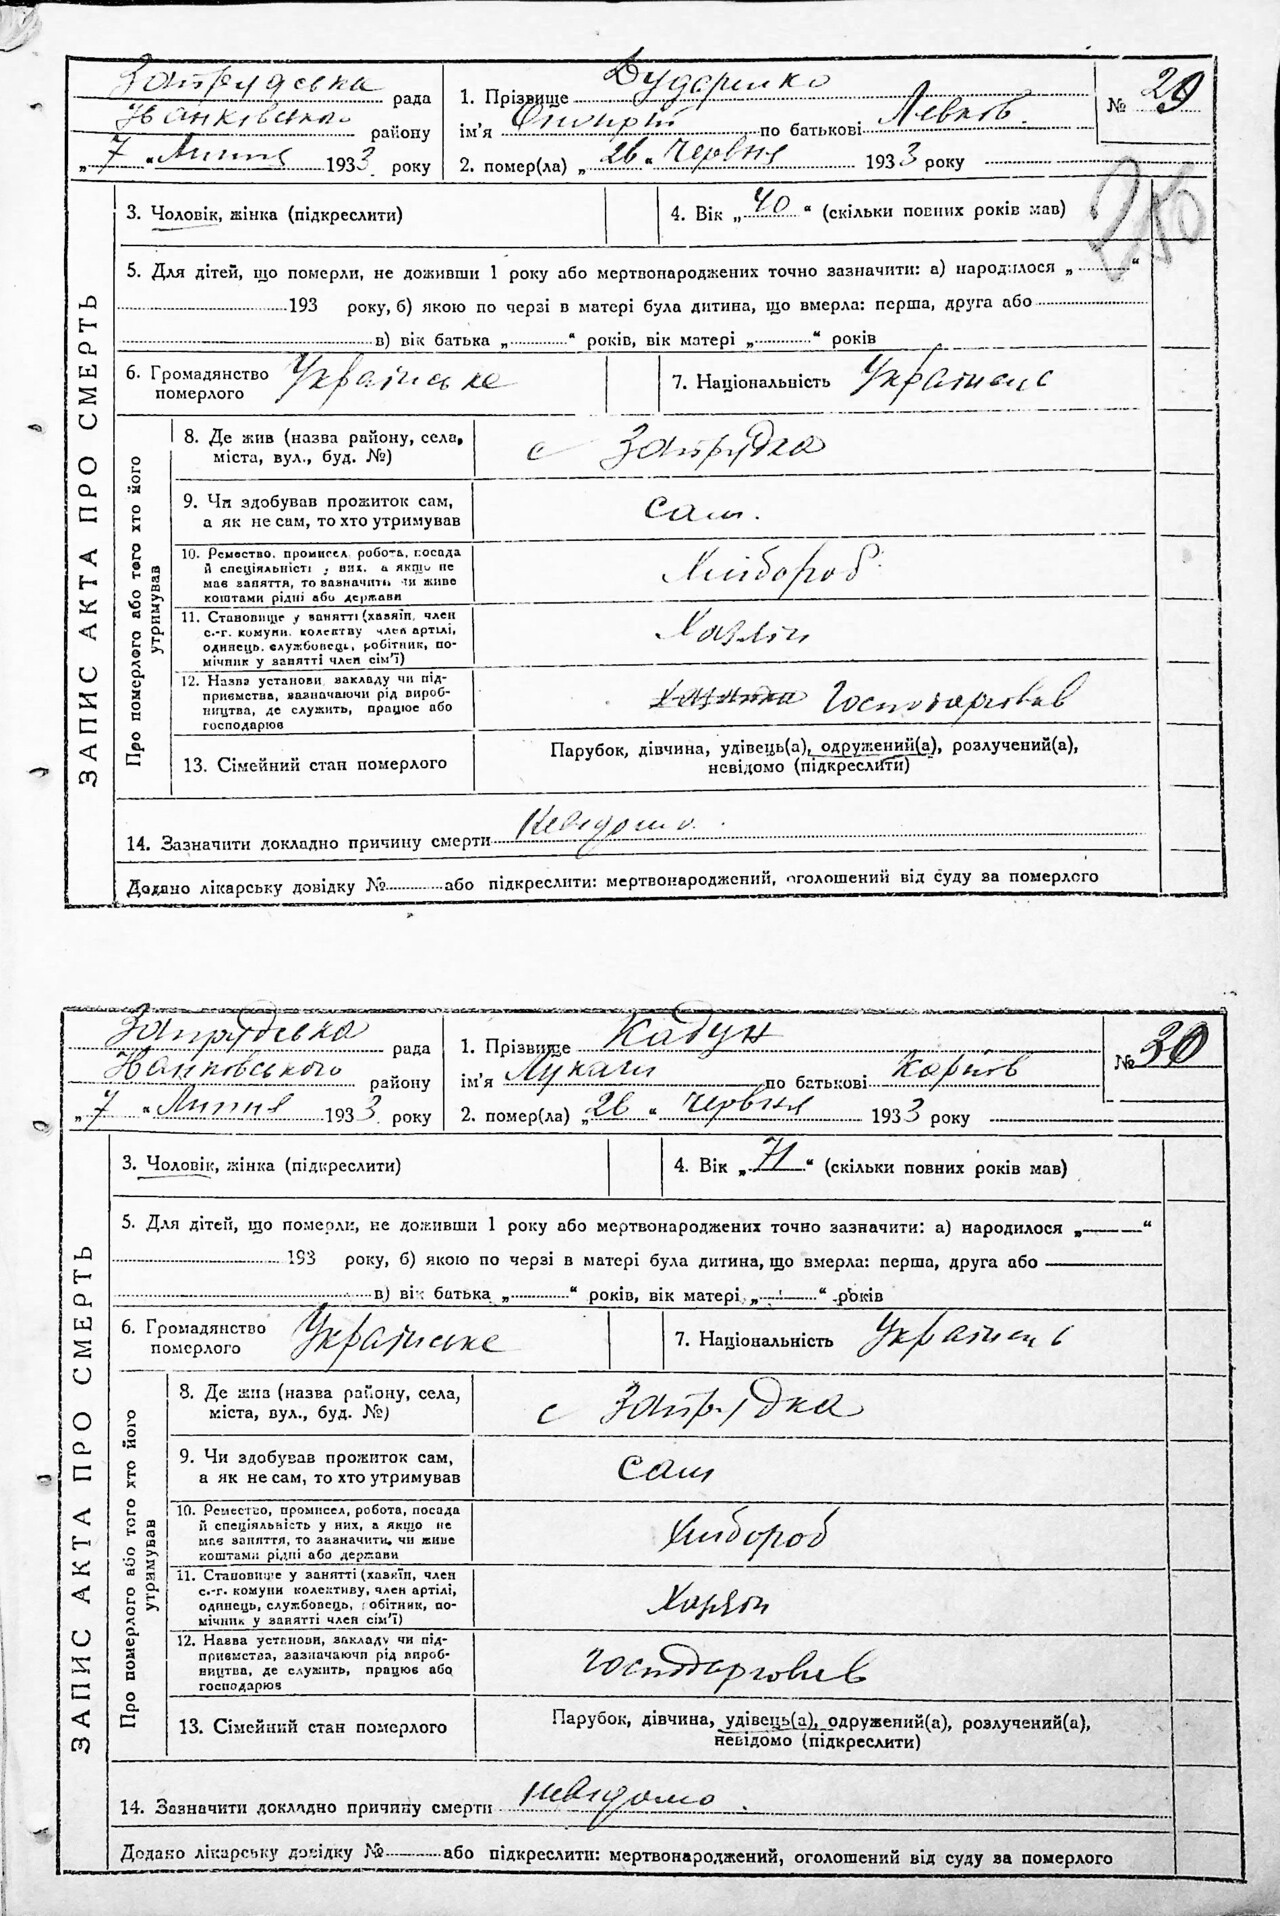 Запрудська рада
Іванківського району
„7“ Липня 1933 року
1. Прізвище Дударенко
ім'я Онопрій по батькові Левков.
2. помер(ла) „26“ Червня 1933 року
№ 29
ЗАПИС АКТА ПРО СМЕРТЬ
3. Чоловік, жінка (підкреслити)
4. Вік „40“ (скільки повних років мав)
5. Для дітей, що померли, не доживши 1 року або мертвонароджених точно зазначити: а) народилося „ “
193 року, б) якою по черзі в матері була дитина, що вмерла: перша, друга або
в) вік батька „ “ років, вік матері „ “ років
6. Громадянство Українське
померлого
7. Національність Українець
Про померлого або того хто його
утримував
8. Де жив (назва району, села,
міста, вул., буд. №)
с Запрудка
9. Чи здобував прожиток сам,
а як не сам, то хто утримував
сам.
10. Ремество, промисел, робота, посада
й спеціяльність у них, а якщо не
має заняття, то зазначить чи живе
коштами рідні або держави
Хлібороб
11. Становище у занятті (хазяїн, член
с.-г. комуни, колективу член артілі,
одинець, службовець, робітник, по-
мічник у занятті член сім'ї)
Хазяїн
12. Назва установи, закладу чи під-
приємства, зазначаючи рід вироб-
ництва, де служить, працює або
господарює
Господарював
13. Сімейний стан померлого
Парубок, дівчина, удівець(а), одружений(а), розлучений(а),
невідомо (підкреслити)
14. Зазначити докладно причину смерти Невідомо.
Додано лікарську довідку № або підкреслити: мертвонароджений, оголошений від суду за померлого
Запрудська рада
Іванківського району
„7“ Липня 1933 року
1. Прізвище Кадун
ім'я Лукаш по батькові Карпов
2. помер(ла) „26“ Червня 1933 року
№ 30
ЗАПИС АКТА ПРО СМЕРТЬ
3. Чоловік, жінка (підкреслити)
4. Вік „71“ (скільки повних років мав)
5. Для дітей, що померли, не доживши 1 року або мертвонароджених точно зазначити: а) народилося „ “
193 року, б) якою по черзі в матері була дитина, що вмерла: перша, друга або
в) вік батька „ “ років, вік матері „ “ років
6. Громадянство Українське
померлого
7. Національність Українець
Про померлого або того хто його
утримував
8. Де жив (назва району, села,
міста, вул., буд. №)
с Запрудка
9. Чи здобував прожиток сам,
а як не сам, то хто утримував
сам
10. Ремество, промисел, робота, посада
й спеціяльність у них, а якщо не
має заняття, то зазначити, чи живе
коштами рідні або держави
Хлібороб
11. Становище у занятті (хазяїн, член
с.-г. комуни колективу, член артілі,
одинець, службовець, робітник, по-
мічник у занятті член сім'ї)
Хазяїн
12. Назва установи, закладу чи під-
приємства, зазначаючи рід вироб-
ництва, де служить, працює або
господарює
Господарював
13. Сімейний стан померлого
Парубок, дівчина, удівець(а), одружений(а), розлучений(а),
невідомо (підкреслити)
14. Зазначити докладно причину смерти невідомо.
Додано лікарську довідку № або підкреслити: мертвонароджений, оголошений від суду за померлого